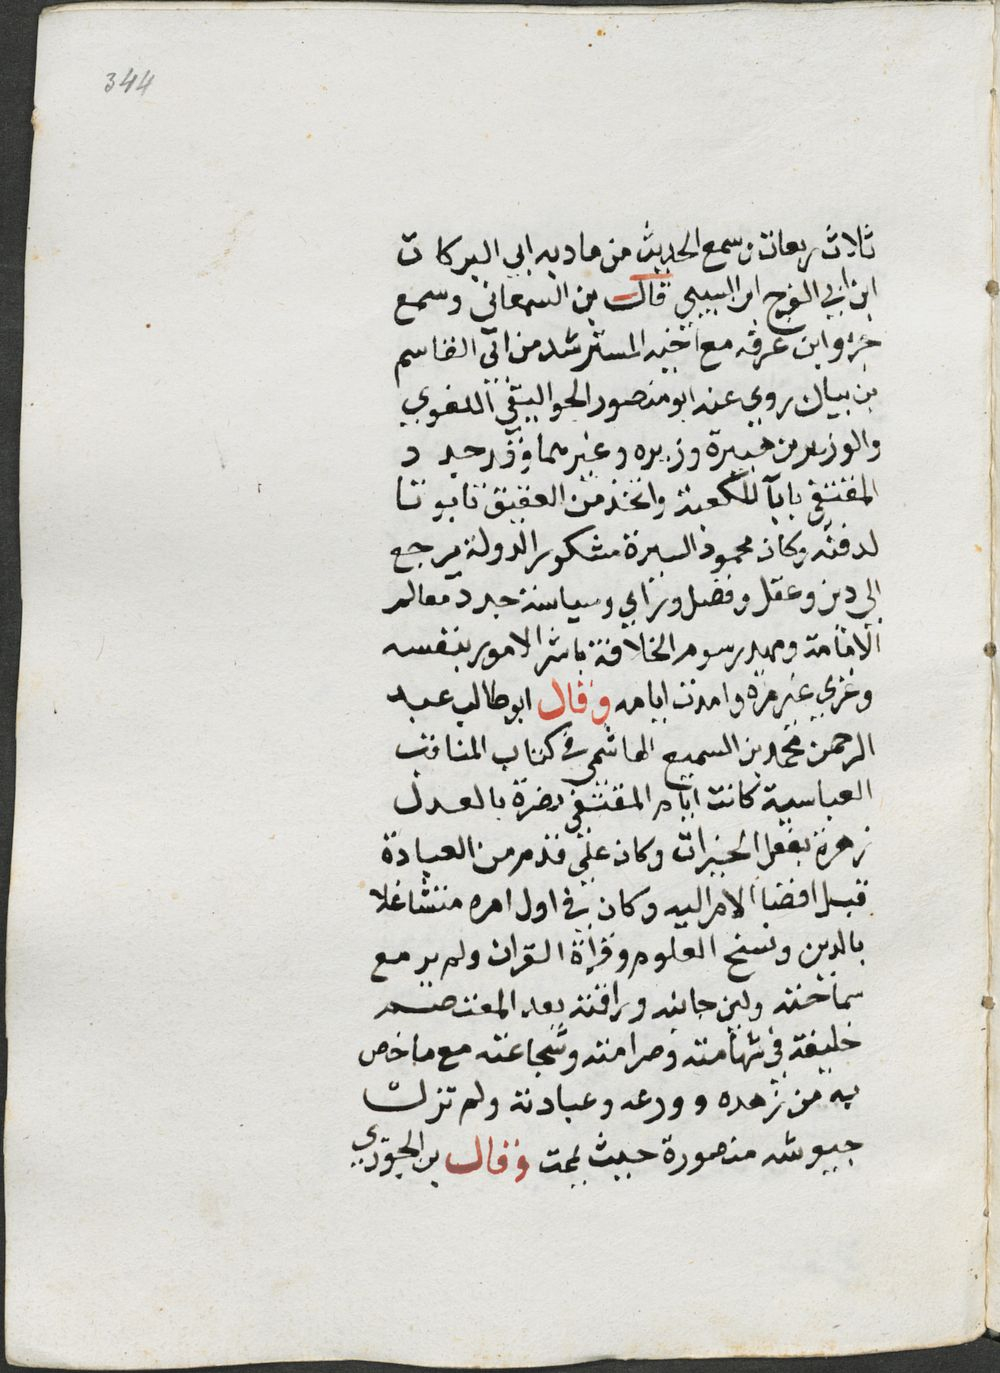 344
ثلاث ربعات وسمع الحديث من مادبه ابي البركات
ابن ابي الفرج ابن السيبي قال بن السمعاني وسمع
جزو ابن عرفه مع اخيه المسترشد من ابي القاسم
بن بيان روي عنه ابو منصور الجواليقي اللغوي
والوزير بن هبيرة وزيره وغيرهما وقد جدد
المقتفي بابا للكعبة واتخذ من العقيق تابوتا
لدفنه وكان محمود السيرة مشكور الدولة يرجع
الي دين وعقل وفضل وراي وسياسة جدد معالم
الامامة ومهد رسوم الخلافة باشر الامور بنفسه
وغزي غير مرة وامدت ايامه وقال ابو طالب عبد
الرحمن محمد بن السميع الهاشمي في كتاب المناقب
العباسية كانت ايام المقتفي نضرة بالعدل
زهرة بفعل الخيرات وكان علي قدم من العبادة
قبل افضا الامر اليه وكان في اول امره متشاغلا
بالدين ونسخ العلوم وقراة القران ولم ير مع
سماحته ولين جانبه ورافته بعد المعتصم
خليفة في شهامته وصرامته وشجاعته مع ما خص
به من زهده وورعه وعبادته ولم تزل
جيوشه منصورة حيث يمت وقال بن الجوزي